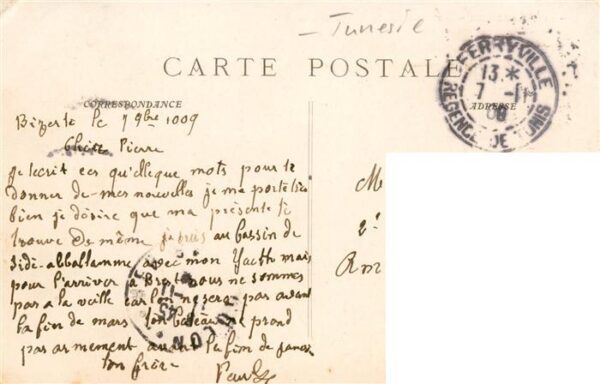 – Tunesie
CARTE POSTALE
FERRYVILLE
13 *
7 - 11
09
REGENCE DE TUNIS
CORRESPONDANCE
ADRESSE
Bizerte le 7 9bre 1909
Cher Pierre
je tecrit ces quelleque mots pour te
donner de mes nouvelles je me porte très
bien je désire que ma présente te
trouve de même je suis au bassin de
Sidi-abdallamme avec mon Yacth mais
pour l'arriver à Brest nous ne sommes
pas a la veille car la ne sera pas avant
la fin de mars ton bateau ne prend
pas armement avant la fin de
ton frère
Paul
TOULON
M
2